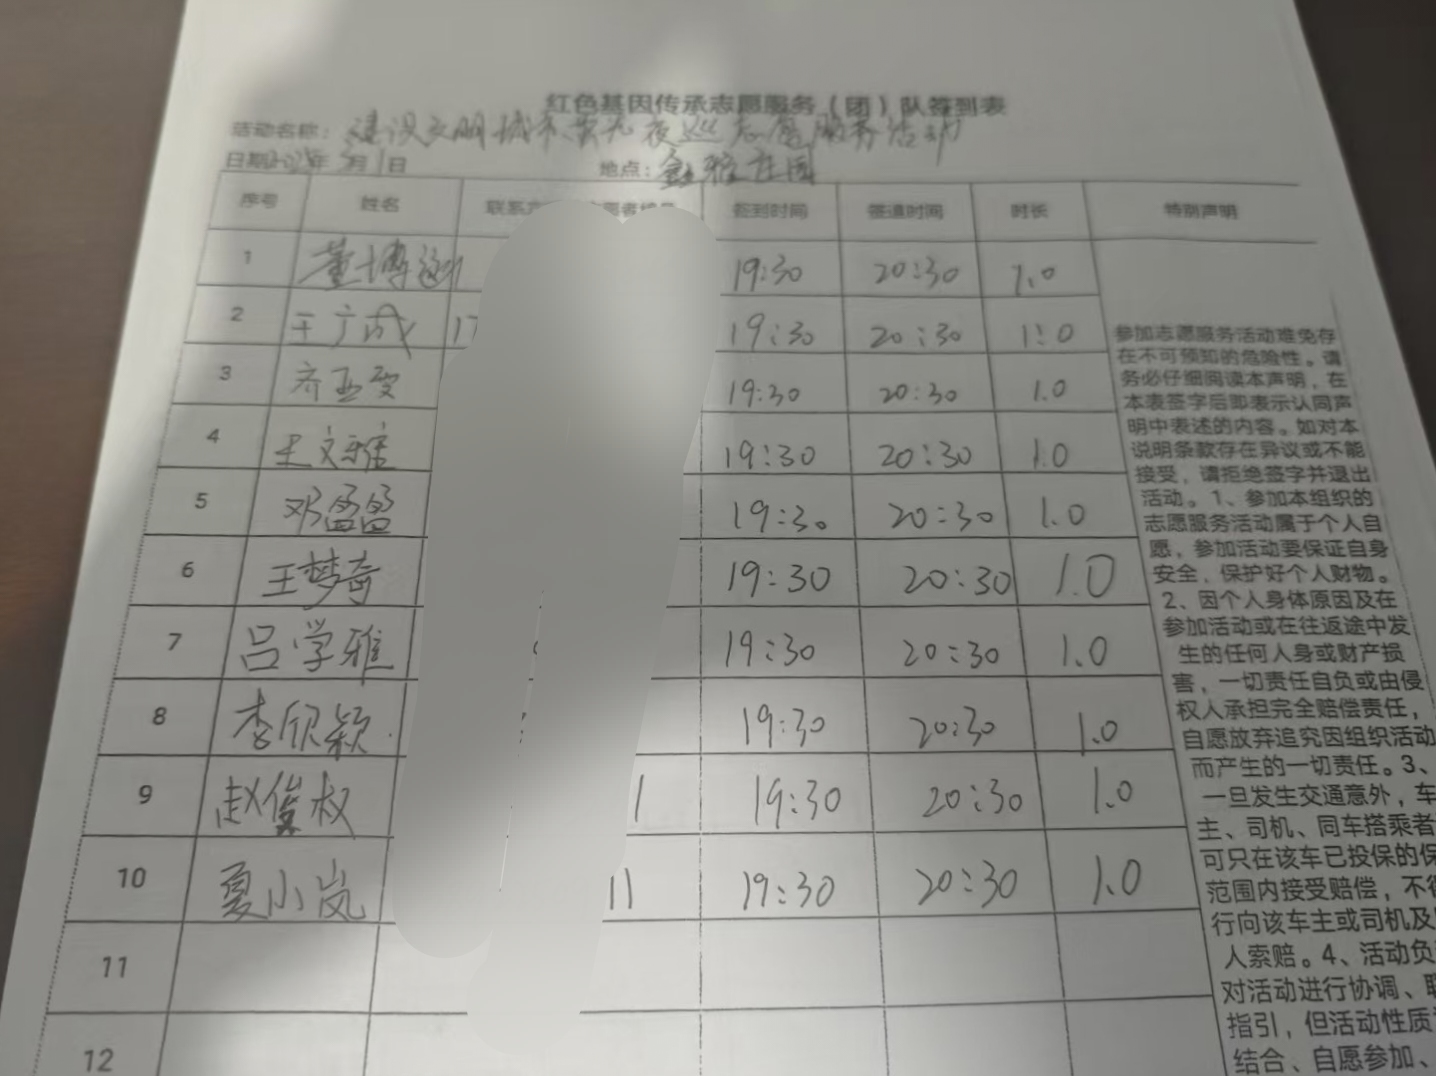 红色基因传承志愿服务(团)队签到表
活动名称:建设文明城市 夜巡志愿服务活动
日期 年5月1日 地点:鑫雅庄园
序号 姓名 联系方 签到时间 签退时间 时长 特别声明
1 董博 19:30 20:30 1.0
2 王广成 17 19:30 20:30 1:0
3 齐亚雯 19:30 20:30 1.0
4 王文雅 19:30 20:30 1.0
5 邓 19:30 20:30 1.0
6 王梦奇 19:30 20:30 1.0
7 吕学雅 19:30 20:30 1.0
8 李欣颖 19:30 20:30 1.0
9 赵俊权 1 19:30 20:30 1.0
10 夏小岚 11 19:30 20:30 1.0
11
12
参加志愿服务活动难免存
在不可预知的危险性。请
务必仔细阅读本声明,在
本表签字后即表示认同声
明中表述的内容。如对本
说明条款存在异议或不能
接受,请拒绝签字并退出
活动。1、参加本组织的
志愿服务活动属于个人自
愿,参加活动要保证自身
安全、保护好个人财物。
2、因个人身体原因及在
参加活动或在往返途中发
生的任何人身或财产损
害,一切责任自负或由侵
权人承担完全赔偿责任,
自愿放弃追究因组织活动
而产生的一切责任。3、
一旦发生交通意外,车
主、司机、同车搭乘者
可只在该车已投保的保
范围内接受赔偿,不得
行向该车主或司机及
人索赔。4、活动负
对活动进行协调、联
指引,但活动性质
结合、自愿参加、